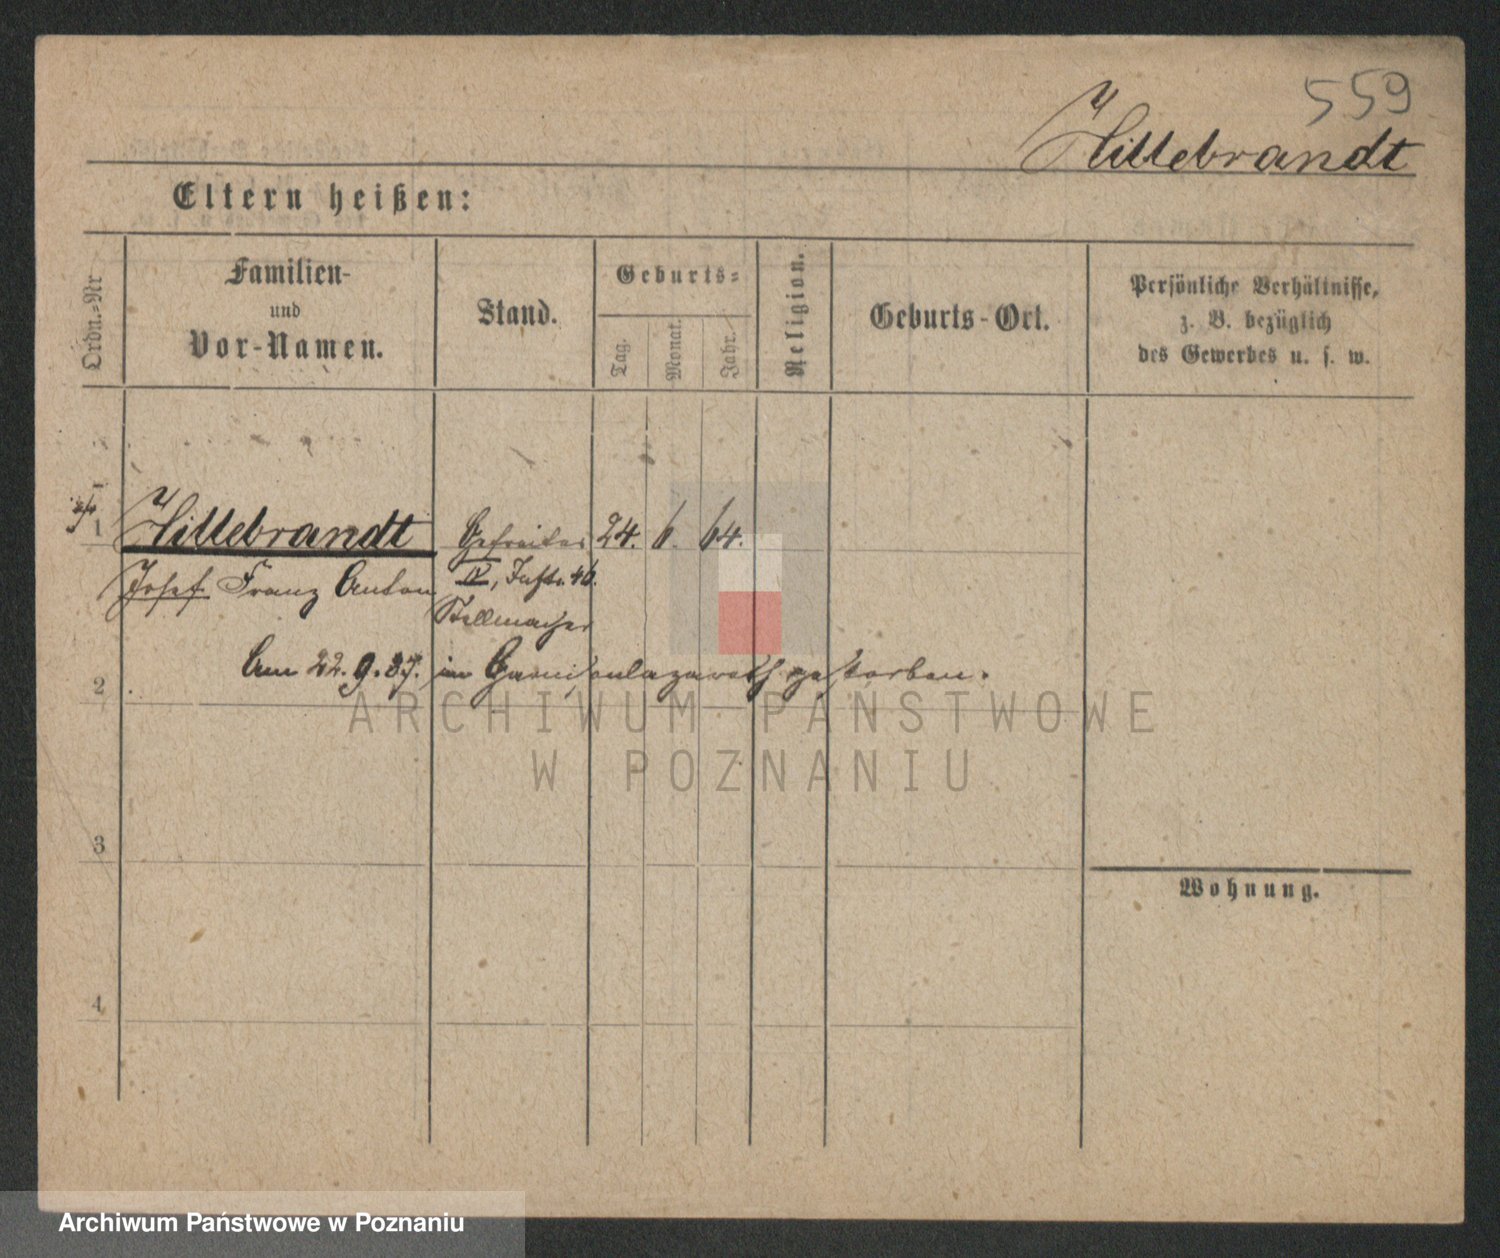 559
Hillebrandt
Eltern heißen:
Ordn.-Nr
Familien-
und
Vor-Namen.
Stand.
Geburts-
Tag.
Monat.
Jahr.
Religion.
Geburts-Ort.
Persönliche Verhältnisse,
z. B. bezüglich
des Gewerbes u. s. w.
1
Hillebrandt
Gefreiter
24.
6.
64.
Josef Franz Anton
IV, Inftr. 46.
Stellmacher
Am 22. 9. 87. im Garnisonlazareth gestorben.
2
ARCHIWUM PAŃSTWOWE
W POZNANIU
3
Wohnung.
4
Archiwum Państwowe w Poznaniu